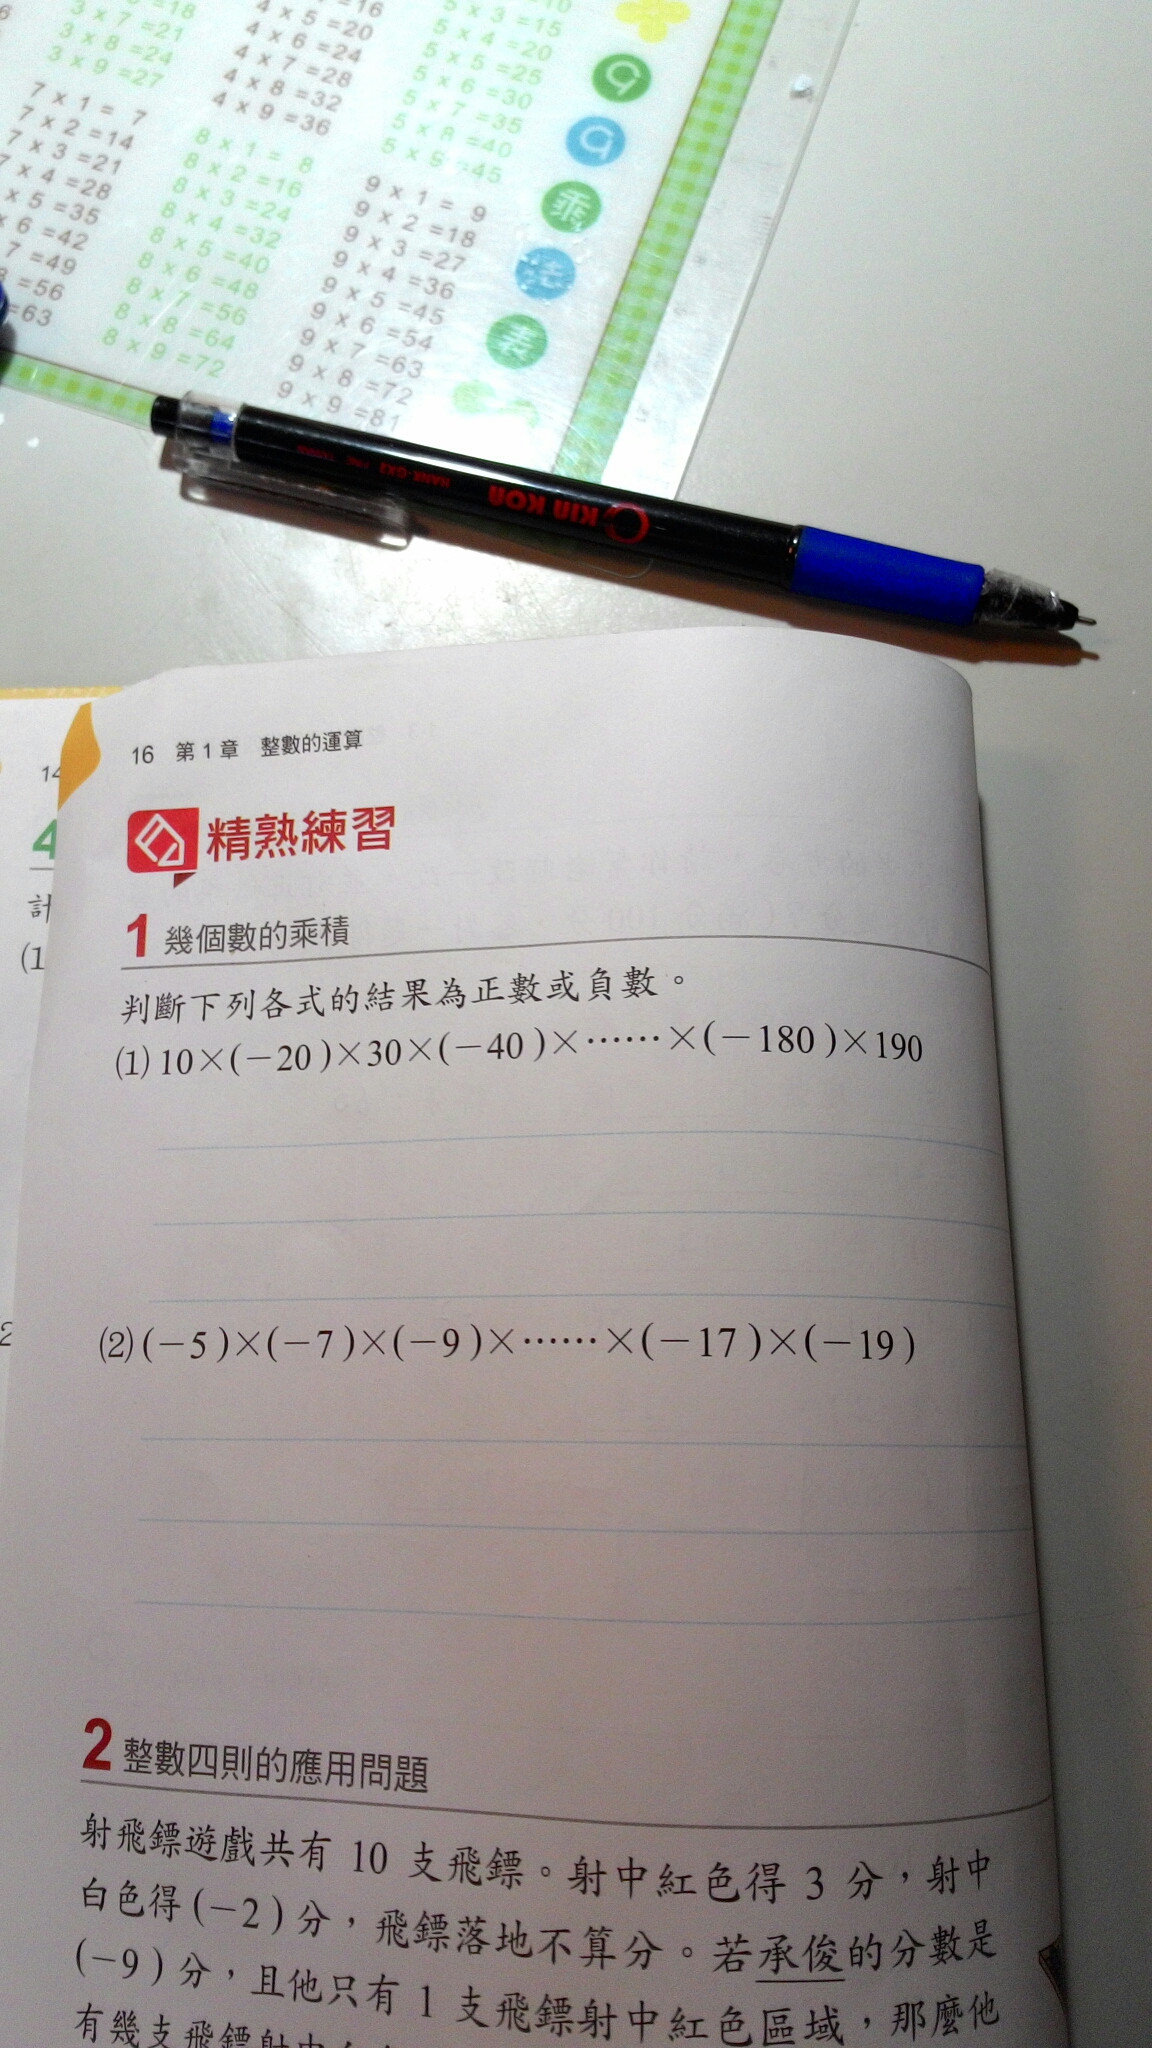 =18
3 x 7 =21
3 x 8 =24
3 x 9 =27
=16
4 x 5 =20
4 x 6 =24
4 x 7 =28
4 x 8 =32
4 x 9 =36
5 x 3 =15
5 x 4 =20
5 x 5 =25
5 x 6 =30
5 x 7 =35
5 x 8 =40
5 x 9 =45
7 x 1 = 7
7 x 2 =14
7 x 3 =21
x 4 =28
x 5 =35
x 6 =42
7 =49
=56
=63
8 x 1 = 8
8 x 2 =16
8 x 3 =24
8 x 4 =32
8 x 5 =40
8 x 6 =48
8 x 7 =56
8 x 8 =64
8 x 9 =72
9 x 1 = 9
9 x 2 =18
9 x 3 =27
9 x 4 =36
9 x 5 =45
9 x 6 =54
9 x 7 =63
9 x 8 =72
9 x 9 =81
9
9
乘
法
表
KIN KON
16 第1章 整數的運算
精熟練習
1 幾個數的乘積
判斷下列各式的結果為正數或負數。
⑴ 10×(−20)×30×(−40)×⋯⋯×(−180)×190
⑵ (−5)×(−7)×(−9)×⋯⋯×(−17)×(−19)
2 整數四則的應用問題
射飛鏢遊戲共有 10 支飛鏢。射中紅色得 3 分，射中
白色得(−2)分，飛鏢落地不算分。若承俊的分數是
(−9)分，且他只有 1 支飛鏢射中紅色區域，那麼他
有幾支飛鏢射中
14
4
計